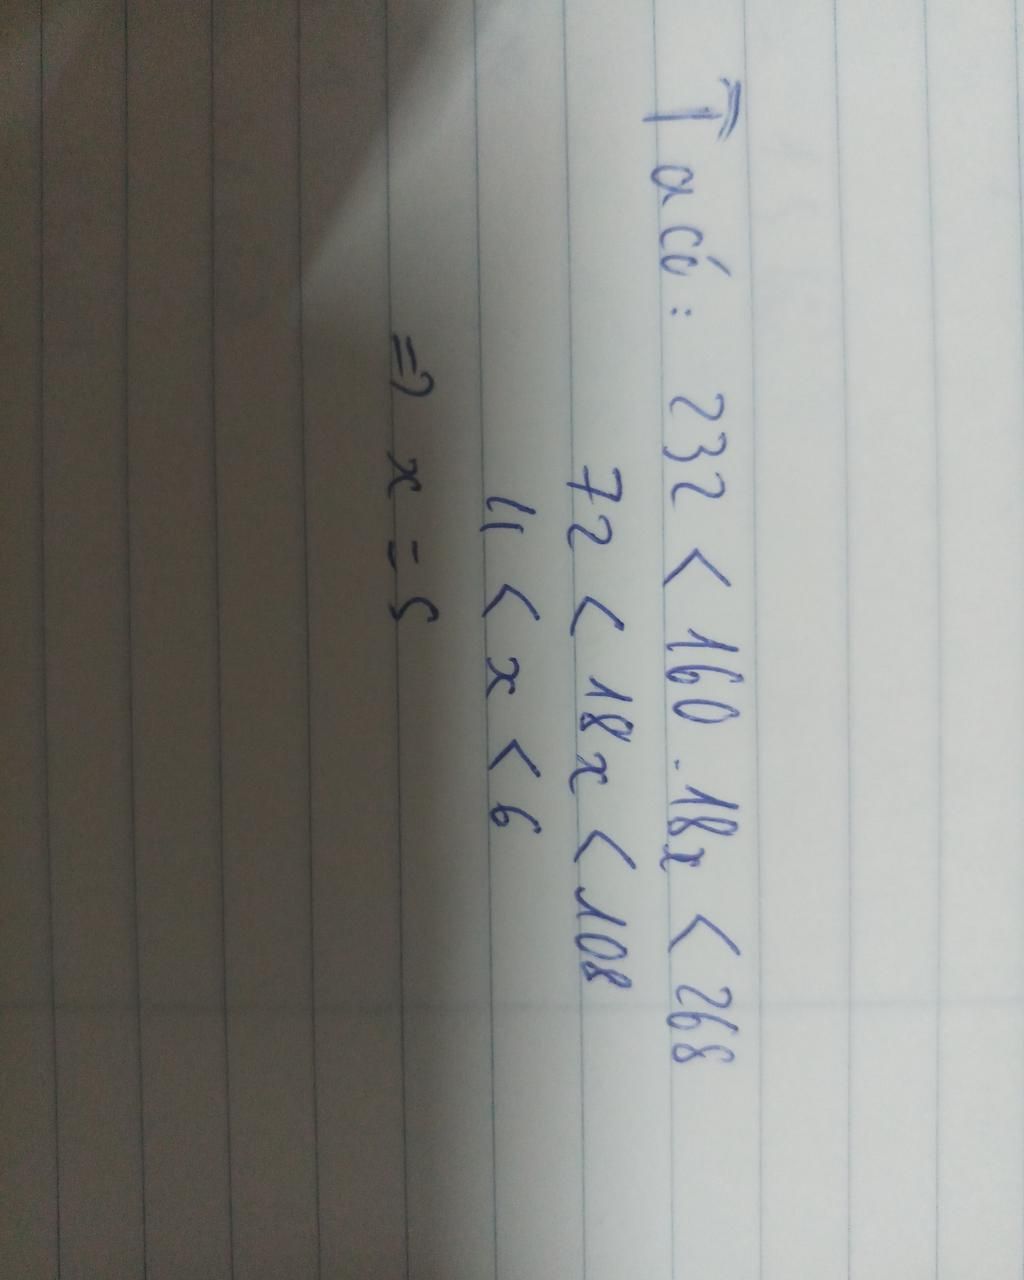 Ta có: 232 < 160 - 18x < 268
72 < 18x < 108
4 < x < 6
=> x = 5